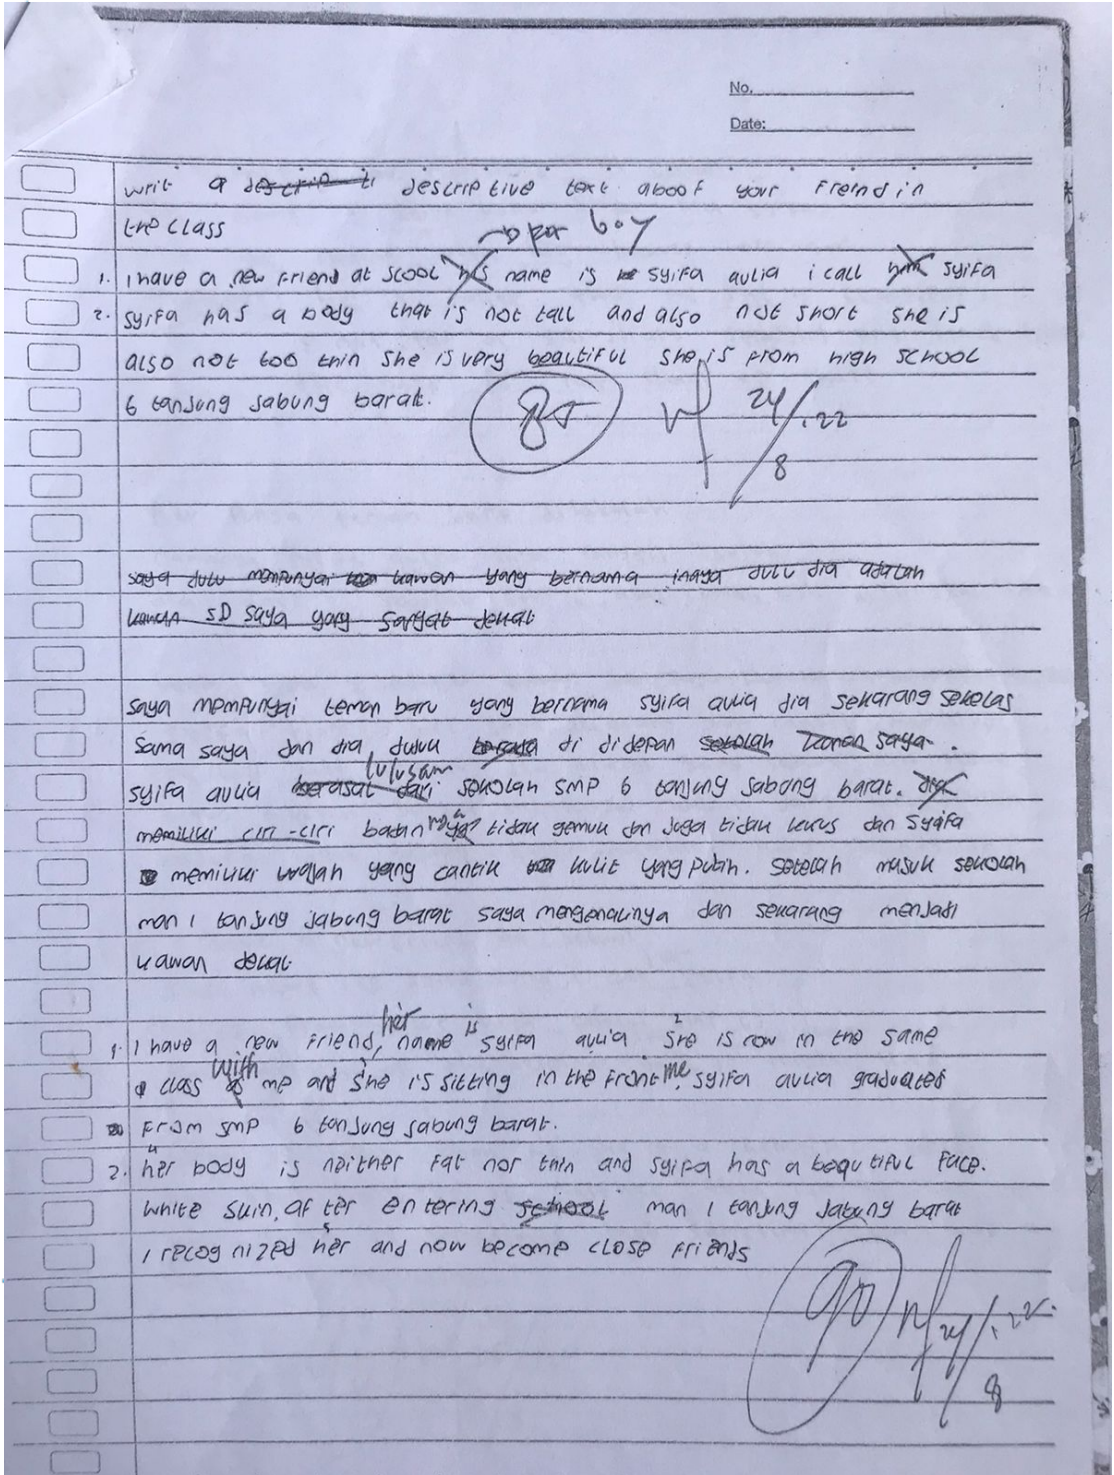 No.
Date:
writ a descriptive text aboof your Freind in
the class
→ for boy
1. I have a new Friend at scool his name is syifa aulia i call him syifa
2. syifa has a body that is not tall and also not short she is
also not too thin she is very beautiful she is From high school
6 tanjung Jabung barat.
85 24/8.22
saya dulu mempunyai kawan yang bernama inaya dulu dia adalah
kawan SD saya yang sangat dekat
saya mempunyai teman baru yang bernama syifa aulia dia sekarang sekelas
sama saya dan dia duduk di didepan saya.
lulusan
syifa aulia berasal dari sekolah SMP 6 tanjung Jabung barat. dia
memiliki ciri-ciri badan tidak gemuk dan Juga tidak kurus dan Syifa
memiliki wajah yang cantik kulit yang putih. setelah masuk sekolah
man 1 tanjung Jabung barat saya mengenalinya dan sekarang menjadi
kawan dekat
her is
1. I have a new Friend, name syifa aulia she is now in the same
with me
class as me and she is sitting in the front syifa aulia graduated
From smp 6 tanjung Jabung barat.
2. her body is neither Fat nor thin and syifa has a beautiful Face.
white skin, after entering school man 1 tanjung Jabung barat
I recognized her and now become close Friends
90 24/8.22